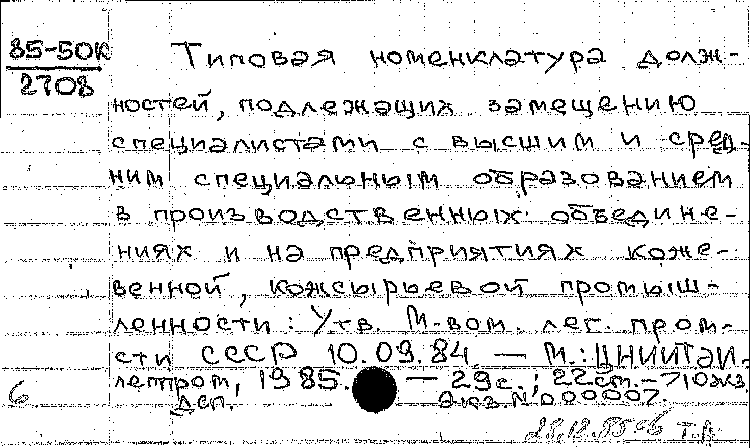 85-50к
2708
Типовая номенклатура долж-
ностей, подлежащих замещению
специалистами с высшим и сред-
ним специальным образованием
в производственных объедине-
ниях и на предприятиях коже-
венной, кожсырьевой промыш-
ленности: Утв. М-вом. лег. пром-
сти СССР 10.09.84 — М.: ЦНИИТЭИ-
легпром, 1985. — 29с.; 22см. – 710кз.
Деп. Экз. № 000007.
6